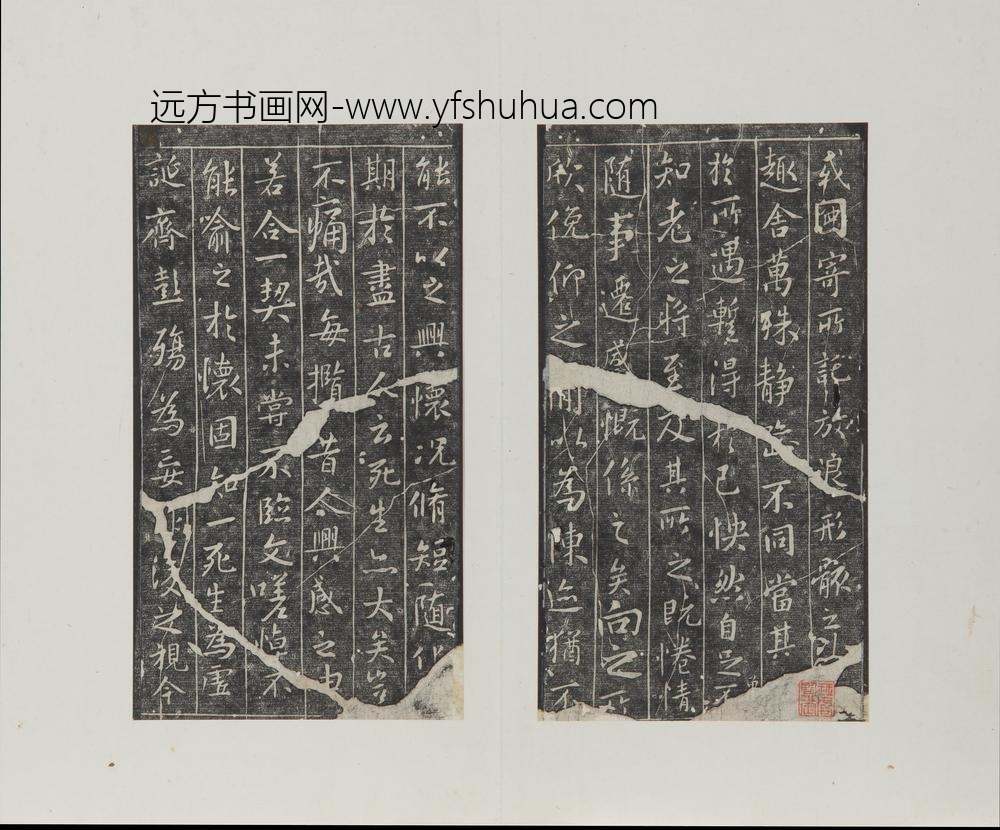 远方书画网-www.yfshuhua.com
或因寄所託放浪形骸之外
趣舍萬殊静躁不同當其
於所遇蹔得於己怏然自足不
知老之將至及其所之既惓情
隨事遷感慨係之矣向之所
欣俛仰之間以為陳迹猶不
能不以之興懷況脩短隨化
期於盡古人云死生亦大矣豈
不痛哉每攬昔人興感之由
若合一契未嘗不臨文嗟悼不
能喻之於懷固知一死生為虛
誕齊彭殤為妄作後之視今